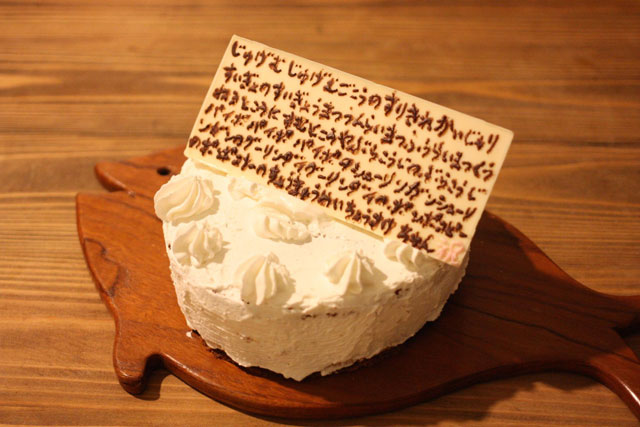 じゅげむじゅげむごこうのすりきれかいじゃり
すいぎょのすいぎょうまつうんらいまつふうらいまつくう
ねるところにすむところやぶらこうじのぶらこうじ
パイポパイポパイポのシューリンガンシューリ
ンガンのグーリンダイグーリンダイのポンポコピー
のポンポコナーのちょうきゅうめいのちょうすけちゃん
祝